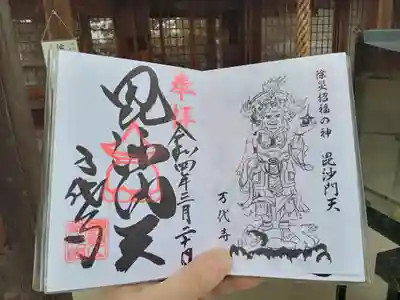 除災招福の神
毘沙門天
万代寺
奉拝
令和四年三月二十日
毘沙門天
万代寺